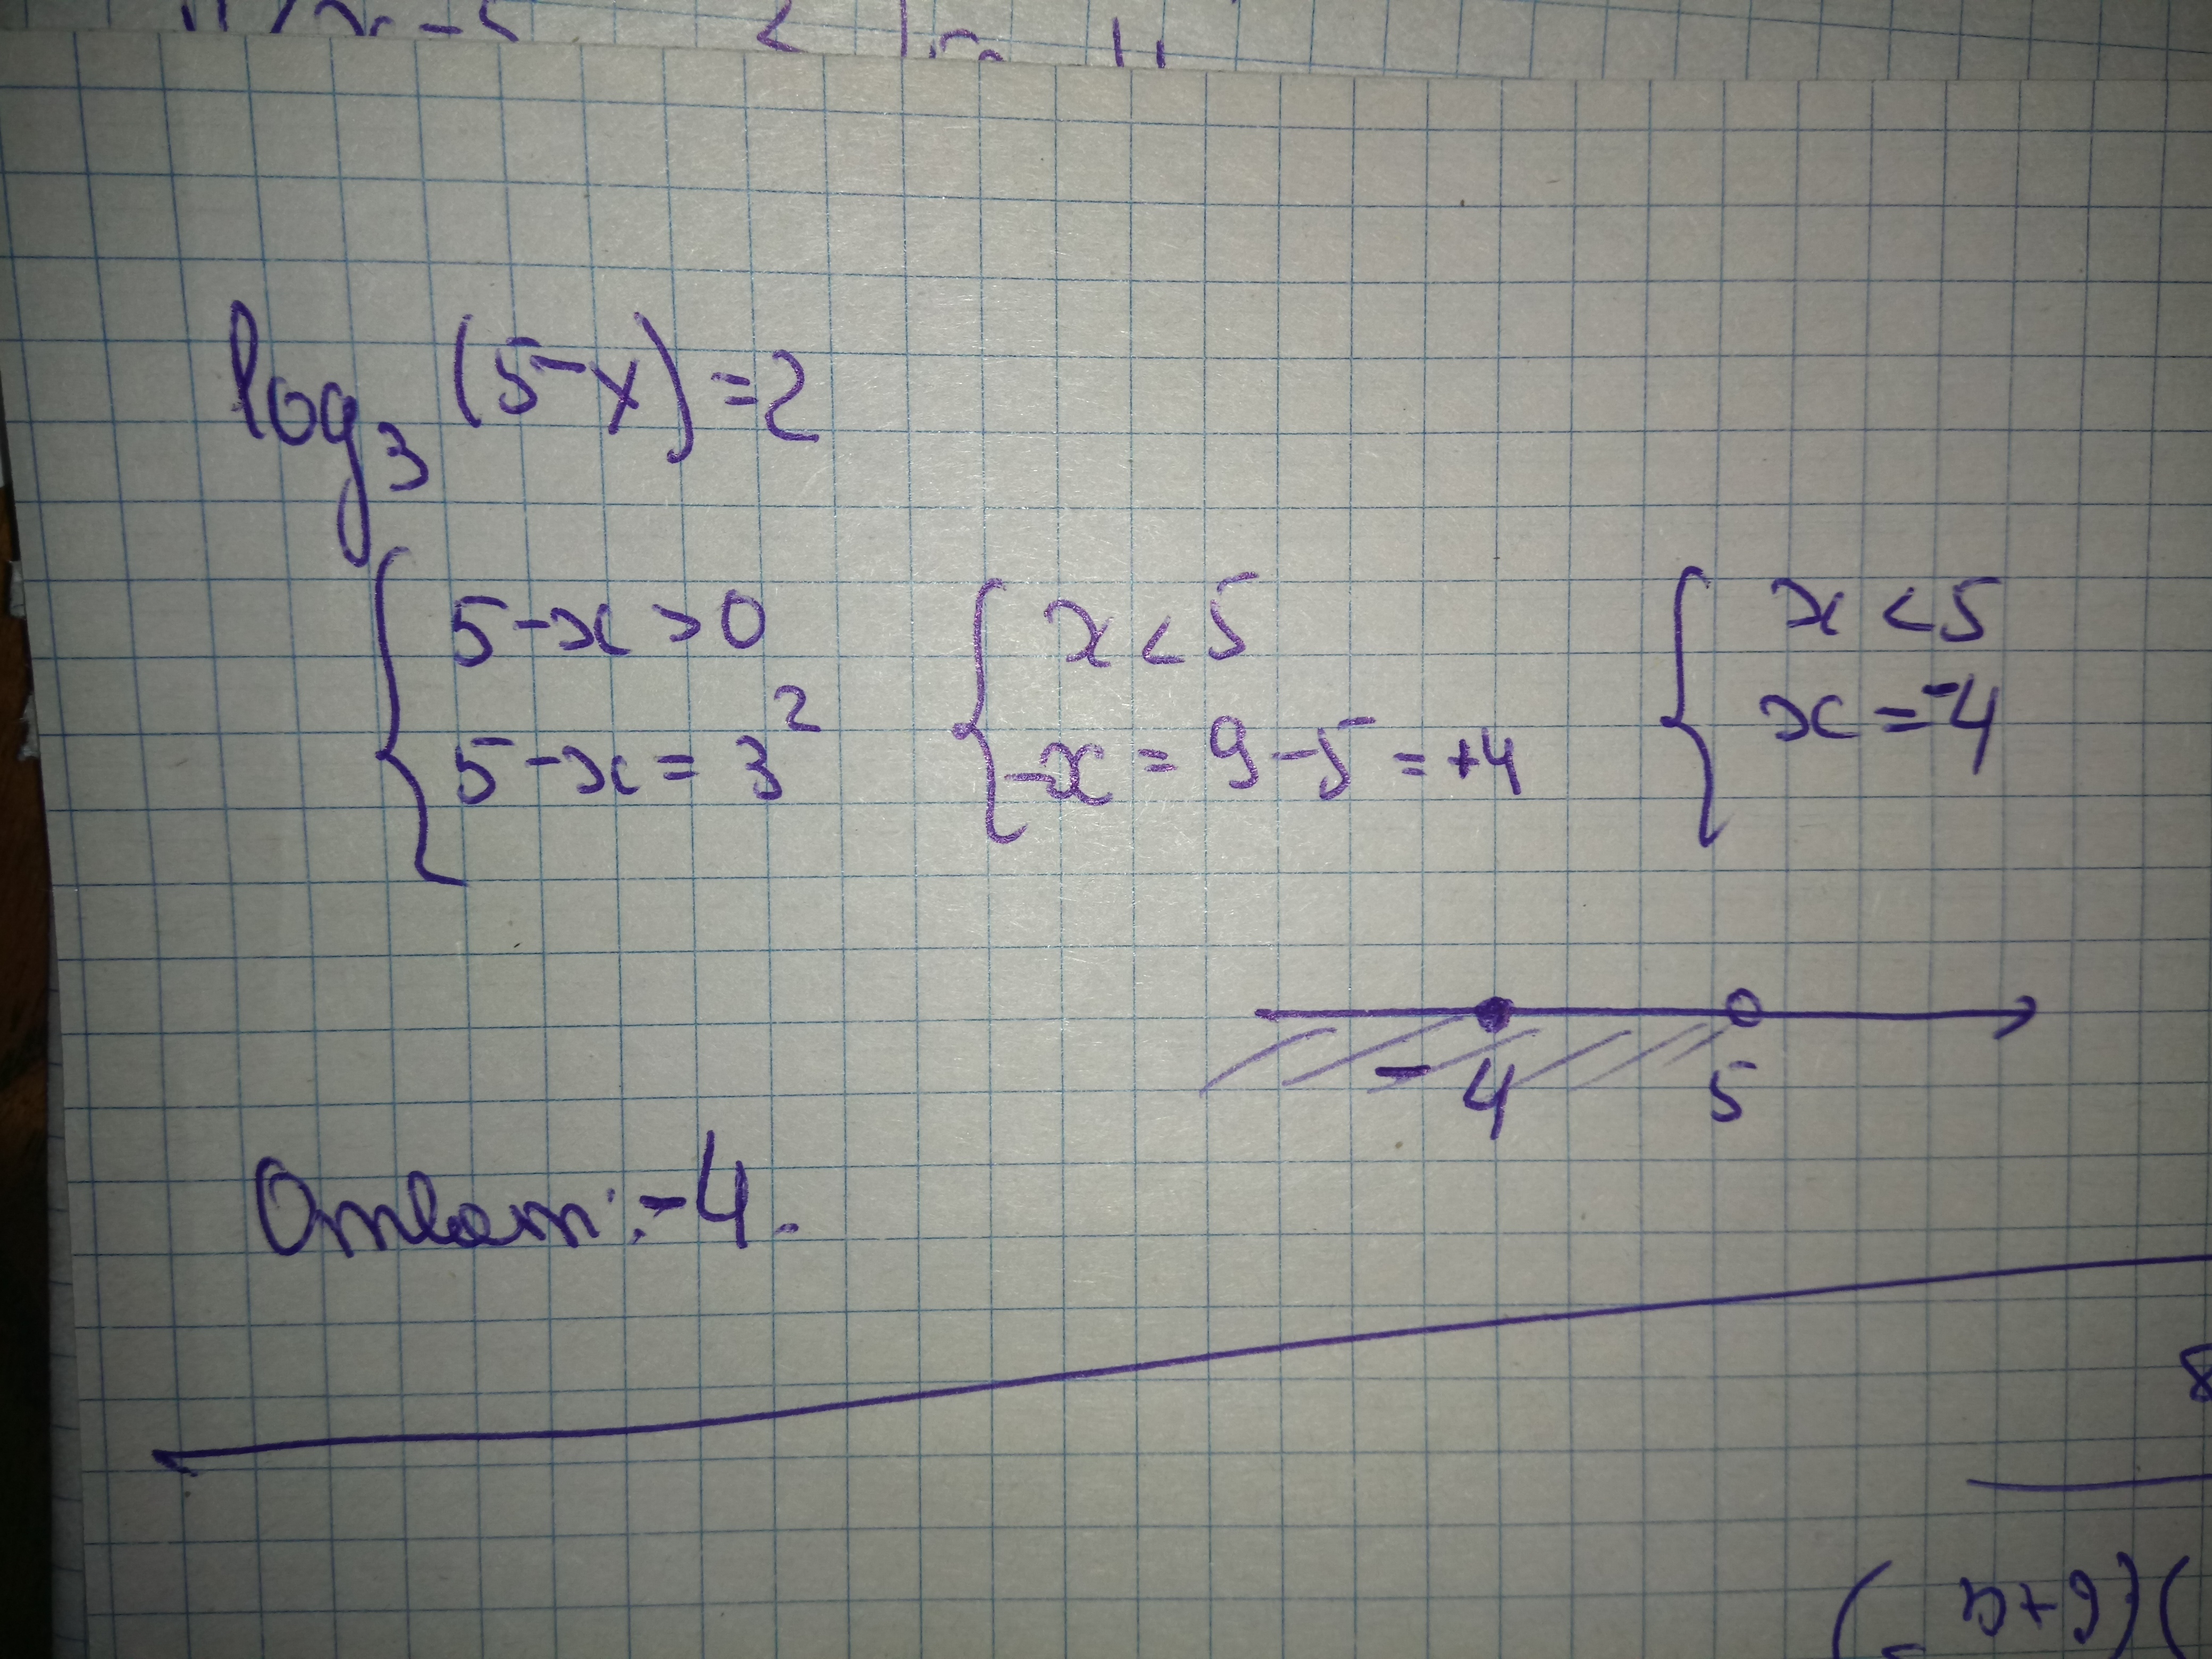 log₃ (5-x) = 2
5-x > 0
5-x = 3²
x < 5
-x = 9-5 = +4
x < 5
x = -4
-4 5
Ответ: -4.
8